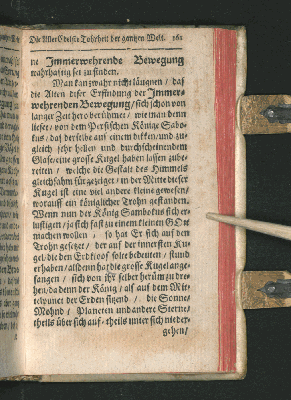 Die Aller Edelste Tohrheit der gantzen Welt. 161
ne Immerwehrende Bewegung
wahrhafftig sei zu finden.
Man kan zwahr nicht läugnen / daß
die Alten diser Erfindung der Immer-
wehrenden Bewegung / sich schon von
langer Zeit hero berühmet / wie man denn
lieset / von dem Persischen Könige Sabo-
kus / daß derselbe auf einem dikken / und zu-
gleich sehr hellen und durchscheinendem
Glase / eine grosse Kugel haben lassen zube-
reiten / welche die Gestalt des Himmels
gleichsahm fürzeiget / in der Mitte diser
Kugel ist eine viel andere kleine gewesen /
worauf ein königlicher Trohn gestanden.
Wenn nun der König Sambokus sich er-
lustigen / ja sich fast zu einem kleinen GOtt
machen wollen / so hat Er sich auf den
Trohn gesetzet / der auf der innersten Ku-
gel / die den Erdkloß solte bedeuten / stund
erhaben / alsdenn hat die grosse Kugel ange-
fangen / sich von ihr selber herüm zu dre-
hen / da denn der König / als auf dem Mit-
telpunct der Erden sitzend / die Sonne /
Mohnd / Planeten und andere Sterne /
theils über sich auf- theils unter sich nieder-
gehen /